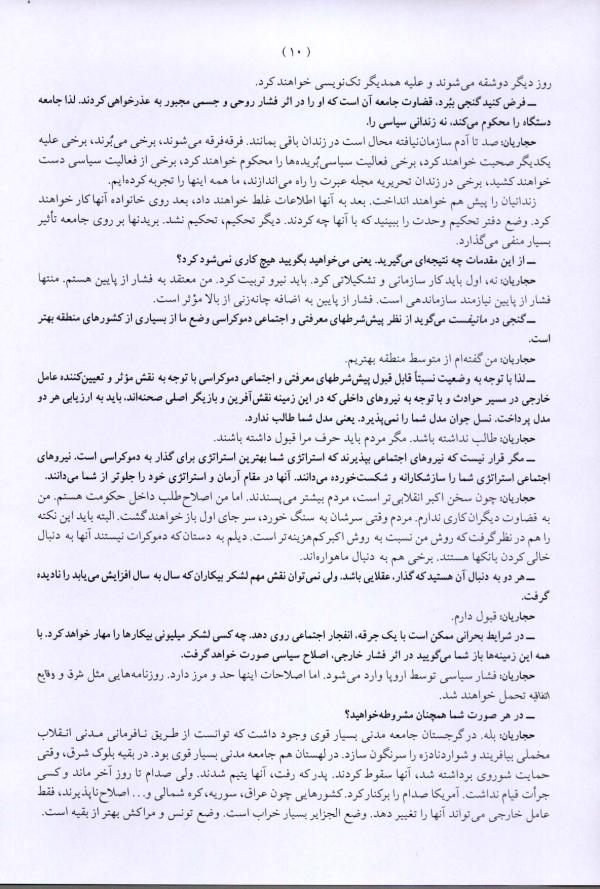 (۱۰)
روز دیگر دوشقه می‌شوند و علیه همدیگر تک‌نویسی خواهند کرد.
ــ فرض کنید گنجی ببُرد، قضاوت جامعه آن است که او را در اثر فشار روحی و جسمی مجبور به عذرخواهی کردند. لذا جامعه
دستگاه را محکوم می‌کند، نه زندانی سیاسی را.
حجاریان: صد تا آدم سازمان‌نیافته محال است در زندان باقی بمانند. فرقه‌فرقه می‌شوند، برخی می‌بُرند، برخی علیه
یکدیگر صحبت خواهند کرد، برخی فعالیت سیاسی بُریده‌ها را محکوم خواهند کرد، برخی از فعالیت سیاسی دست
خواهند کشید، برخی در زندان تحریریه مجله عبرت را راه می‌اندازند، ما همه اینها را تجربه کرده‌ایم.
زندانیان را پیش هم خواهند انداخت. بعد به آنها اطلاعات غلط خواهند داد، بعد روی خانواده آنها کار خواهند
کرد. وضع دفتر تحکیم وحدت را ببینید که با آنها چه کردند. دیگر تحکیم، تحکیم نشد. بریدنها بر روی جامعه تأثیر
بسیار منفی می‌گذارد.
ــ از این مقدمات چه نتیجه‌ای می‌گیرید. یعنی می‌خواهید بگویید هیچ کاری نمی‌شود کرد؟
حجاریان: نه، اول باید کار سازمانی و تشکیلاتی کرد. باید نیرو تربیت کرد. من معتقد به فشار از پایین هستم. منتها
فشار از پایین نیازمند سازماندهی است. فشار از پایین به اضافه چانه‌زنی از بالا مؤثر است.
ــ گنجی در مانیفست می‌گوید از نظر پیش‌شرطهای معرفتی و اجتماعی دموکراسی وضع ما از بسیاری از کشورهای منطقه بهتر
است.
حجاریان: من گفته‌ام از متوسط منطقه بهتریم.
ــ لذا با توجه به وضعیت نسبتاً قابل قبول پیش‌شرطهای معرفتی و اجتماعی دموکراسی با توجه به نقش مؤثر و تعیین‌کننده عامل
خارجی در مسیر حوادث و با توجه به نیروهای داخلی که در این زمینه نقش‌آفرین و بازیگر اصلی صحنه‌اند، باید به ارزیابی هر دو
مدل پرداخت. نسل جوان مدل شما را نمی‌پذیرد. یعنی مدل شما طالب ندارد.
حجاریان: طالب نداشته باشد. مگر مردم باید حرف مرا قبول داشته باشند.
ــ مگر قرار نیست که نیروهای اجتماعی بپذیرند که استراتژی شما بهترین استراتژی برای گذار به دموکراسی است. نیروهای
اجتماعی استراتژی شما را سازشکارانه و شکست‌خورده می‌دانند. آنها در مقام آرمان و استراتژی خود را جلوتر از شما می‌دانند.
حجاریان: چون سخن اکبر انقلابی‌تر است، مردم بیشتر می‌پسندند. اما من اصلاح‌طلب داخل حکومت هستم. من
به قضاوت دیگران کاری ندارم. مردم وقتی سرشان به سنگ خورد، سر جای اول باز خواهند گشت. البته باید این نکته
را هم در نظر گرفت که روش من نسبت به روش اکبر کم‌هزینه‌تر است. دیلم به دستان که دموکرات نیستند آنها به دنبال
خالی کردن بانکها هستند. برخی هم به دنبال ماهواره‌اند.
ــ هر دو به دنبال آن هستید که گذار، عقلایی باشد. ولی نمی‌توان نقش مهم لشکر بیکاران که سال به سال افزایش می‌یابد را نادیده
گرفت.
حجاریان: قبول دارم.
ــ در شرایط بحرانی ممکن است با یک جرقه، انفجار اجتماعی روی دهد. چه کسی لشکر میلیونی بیکارها را مهار خواهد کرد. با
همه این زمینه‌ها باز شما می‌گویید در اثر فشار خارجی، اصلاح سیاسی صورت خواهد گرفت.
حجاریان: فشار سیاسی توسط اروپا وارد می‌شود. اما اصلاحات اینها حد و مرز دارد. روزنامه‌هایی مثل شرق و وقایع
اتفاقیه تحمل خواهند شد.
ــ در هر صورت شما همچنان مشروطه‌خواهید؟
حجاریان: بله. در گرجستان جامعه مدنی بسیار قوی وجود داشت که توانست از طریق نـافرمانی مـدنی انـقلاب
مخملی بیافریند و شواردنادزه را سرنگون سازد. در لهستان هم جامعه مدنی بسیار قوی بود. در بقیه بلوک شرق، وقتی
حمایت شوروی برداشته شد، آنها سقوط کردند. پدر که رفت، آنها یتیم شدند. ولی صدام تا روز آخر ماند و کسی
جرأت قیام نداشت. آمریکا صدام را برکنار کرد. کشورهایی چون عراق، سوریه، کره شمالی و... اصلاح‌ناپذیرند، فقط
عامل خارجی می‌تواند آنها را تغییر دهد. وضع الجزایر بسیار خراب است. وضع تونس و مراکش بهتر از بقیه است.